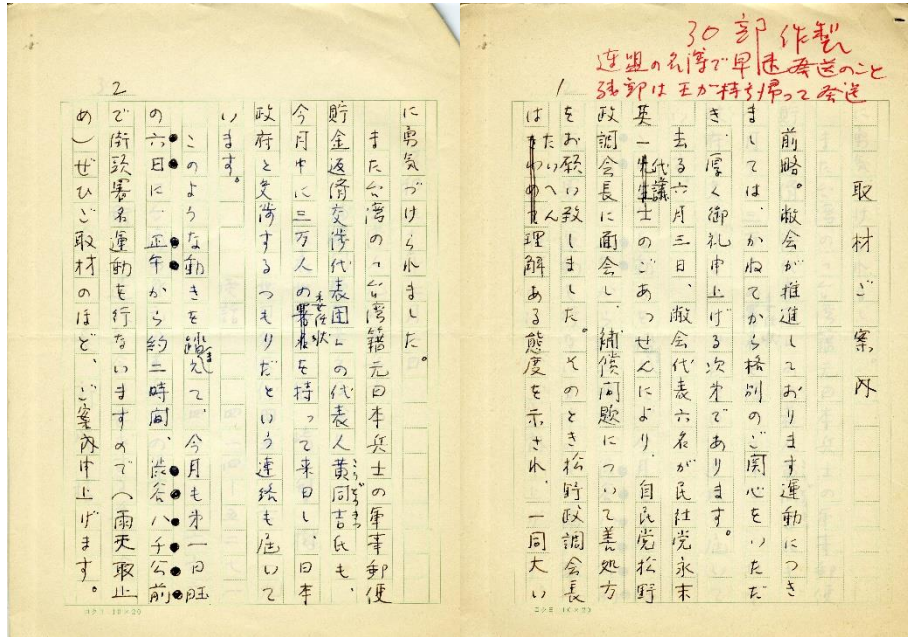 30部 作製
連盟の名簿で早速発送のこと
残部は王が持ち帰って発送
1
取材ご案内
前略。敝会が推進しております運動につき
ましては、かねてから格別のご関心をいただ
き、厚く御礼申上げる次第であります。
去る六月三日、敝会代表六名が民社党永末
英一代議士のごあっせんにより、自民党松野
政調会長に面会し、補償問題について善処方
をお願い致しました。そのとき松野政調会長
はたいへん理解ある態度を示され、一同大い
2
に勇気づけられました。
また台湾の「台湾籍元日本兵士の軍事郵便
貯金返済交渉代表団」の代表人黄同吉氏も、
今月中に三万人の委任状を持って来日し、日本
政府と交渉するつもりだという連絡も届いて
います。
このような動きを踏まえて、今月も第一日曜
の六日に、正午から約二時間、渋谷ハチ公前
で街頭署名運動を行ないますので(雨天取止
め)ぜひご取材のほど、ご案内申上げます。
コクヨ